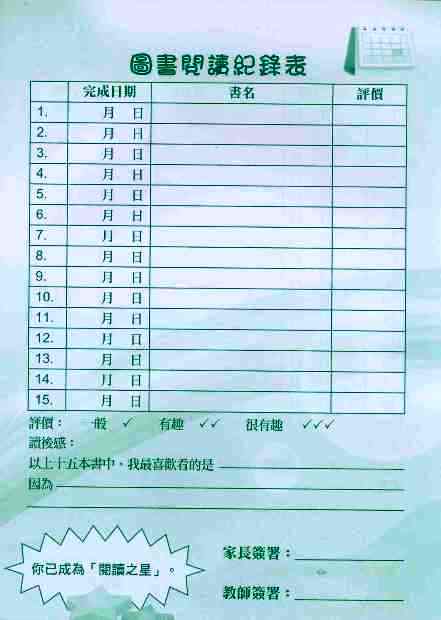 圖書閱讀紀錄表
完成日期 書名 評價
1. 月 日
2. 月 日
3. 月 日
4. 月 日
5. 月 日
6. 月 日
7. 月 日
8. 月 日
9. 月 日
10. 月 日
11. 月 日
12. 月 日
13. 月 日
14. 月 日
15. 月 日
評價： 一般 ✓ 有趣 ✓✓ 很有趣 ✓✓✓
讀後感：
以上十五本書中，我最喜歡看的是
因為
家長簽署：
你已成為「閱讀之星」。
教師簽署：